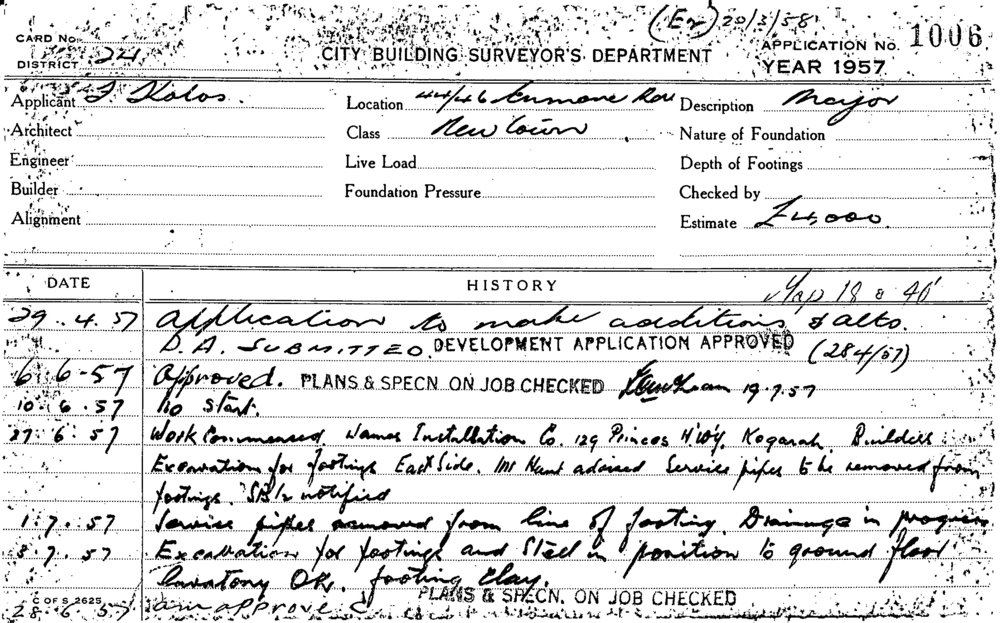 (Er) 20/3/58
CARD No.
DISTRICT 24
CITY BUILDING SURVEYOR'S DEPARTMENT
APPLICATION No. 1006
YEAR 1957
Applicant Kolos.
Location 44/46 Enmore Road
Description Major
Architect
Class Newtown
Nature of Foundation
Engineer
Live Load
Depth of Footings
Builder
Foundation Pressure
Checked by
Alignment
Estimate £4,000
DATE
HISTORY
Map 18 & 40
29.4.57 Application to make additions & alts.
D.A. SUBMITTED. DEVELOPMENT APPLICATION APPROVED (284/57)
6-6-57 Approved. PLANS & SPECN. ON JOB CHECKED 19.7.57
10.6.57 No start.
27.6.57 Work Commenced. Installation Co. 129 Princes H'way. Kogarah. Builders
Excavation for footings East Side. Mr Hunt advised Service pipes to be removed from
footings. notified
1.7.57 Service pipes removed from line of footing. Drainage in progress
3.7.57 Excavation for footings and Steel in position to ground floor
lavatory OK. footing Clay.
PLANS & SPECN. ON JOB CHECKED
C OF S 2625
28.6.57 approved